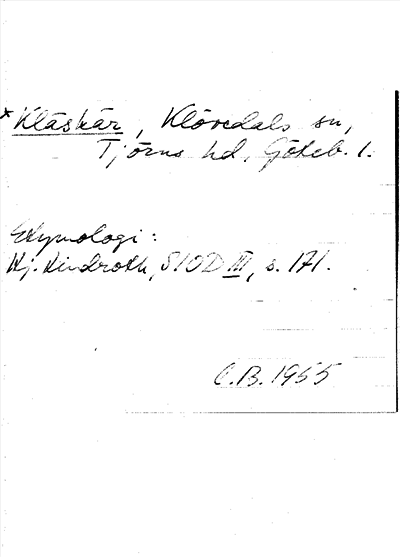 *Kläskär, Klövedals sn,
Tjörns hd, Göteb. l.
Etymologi:
Hj. Lindroth, SIOD III, s. 171.
C.B. 1955